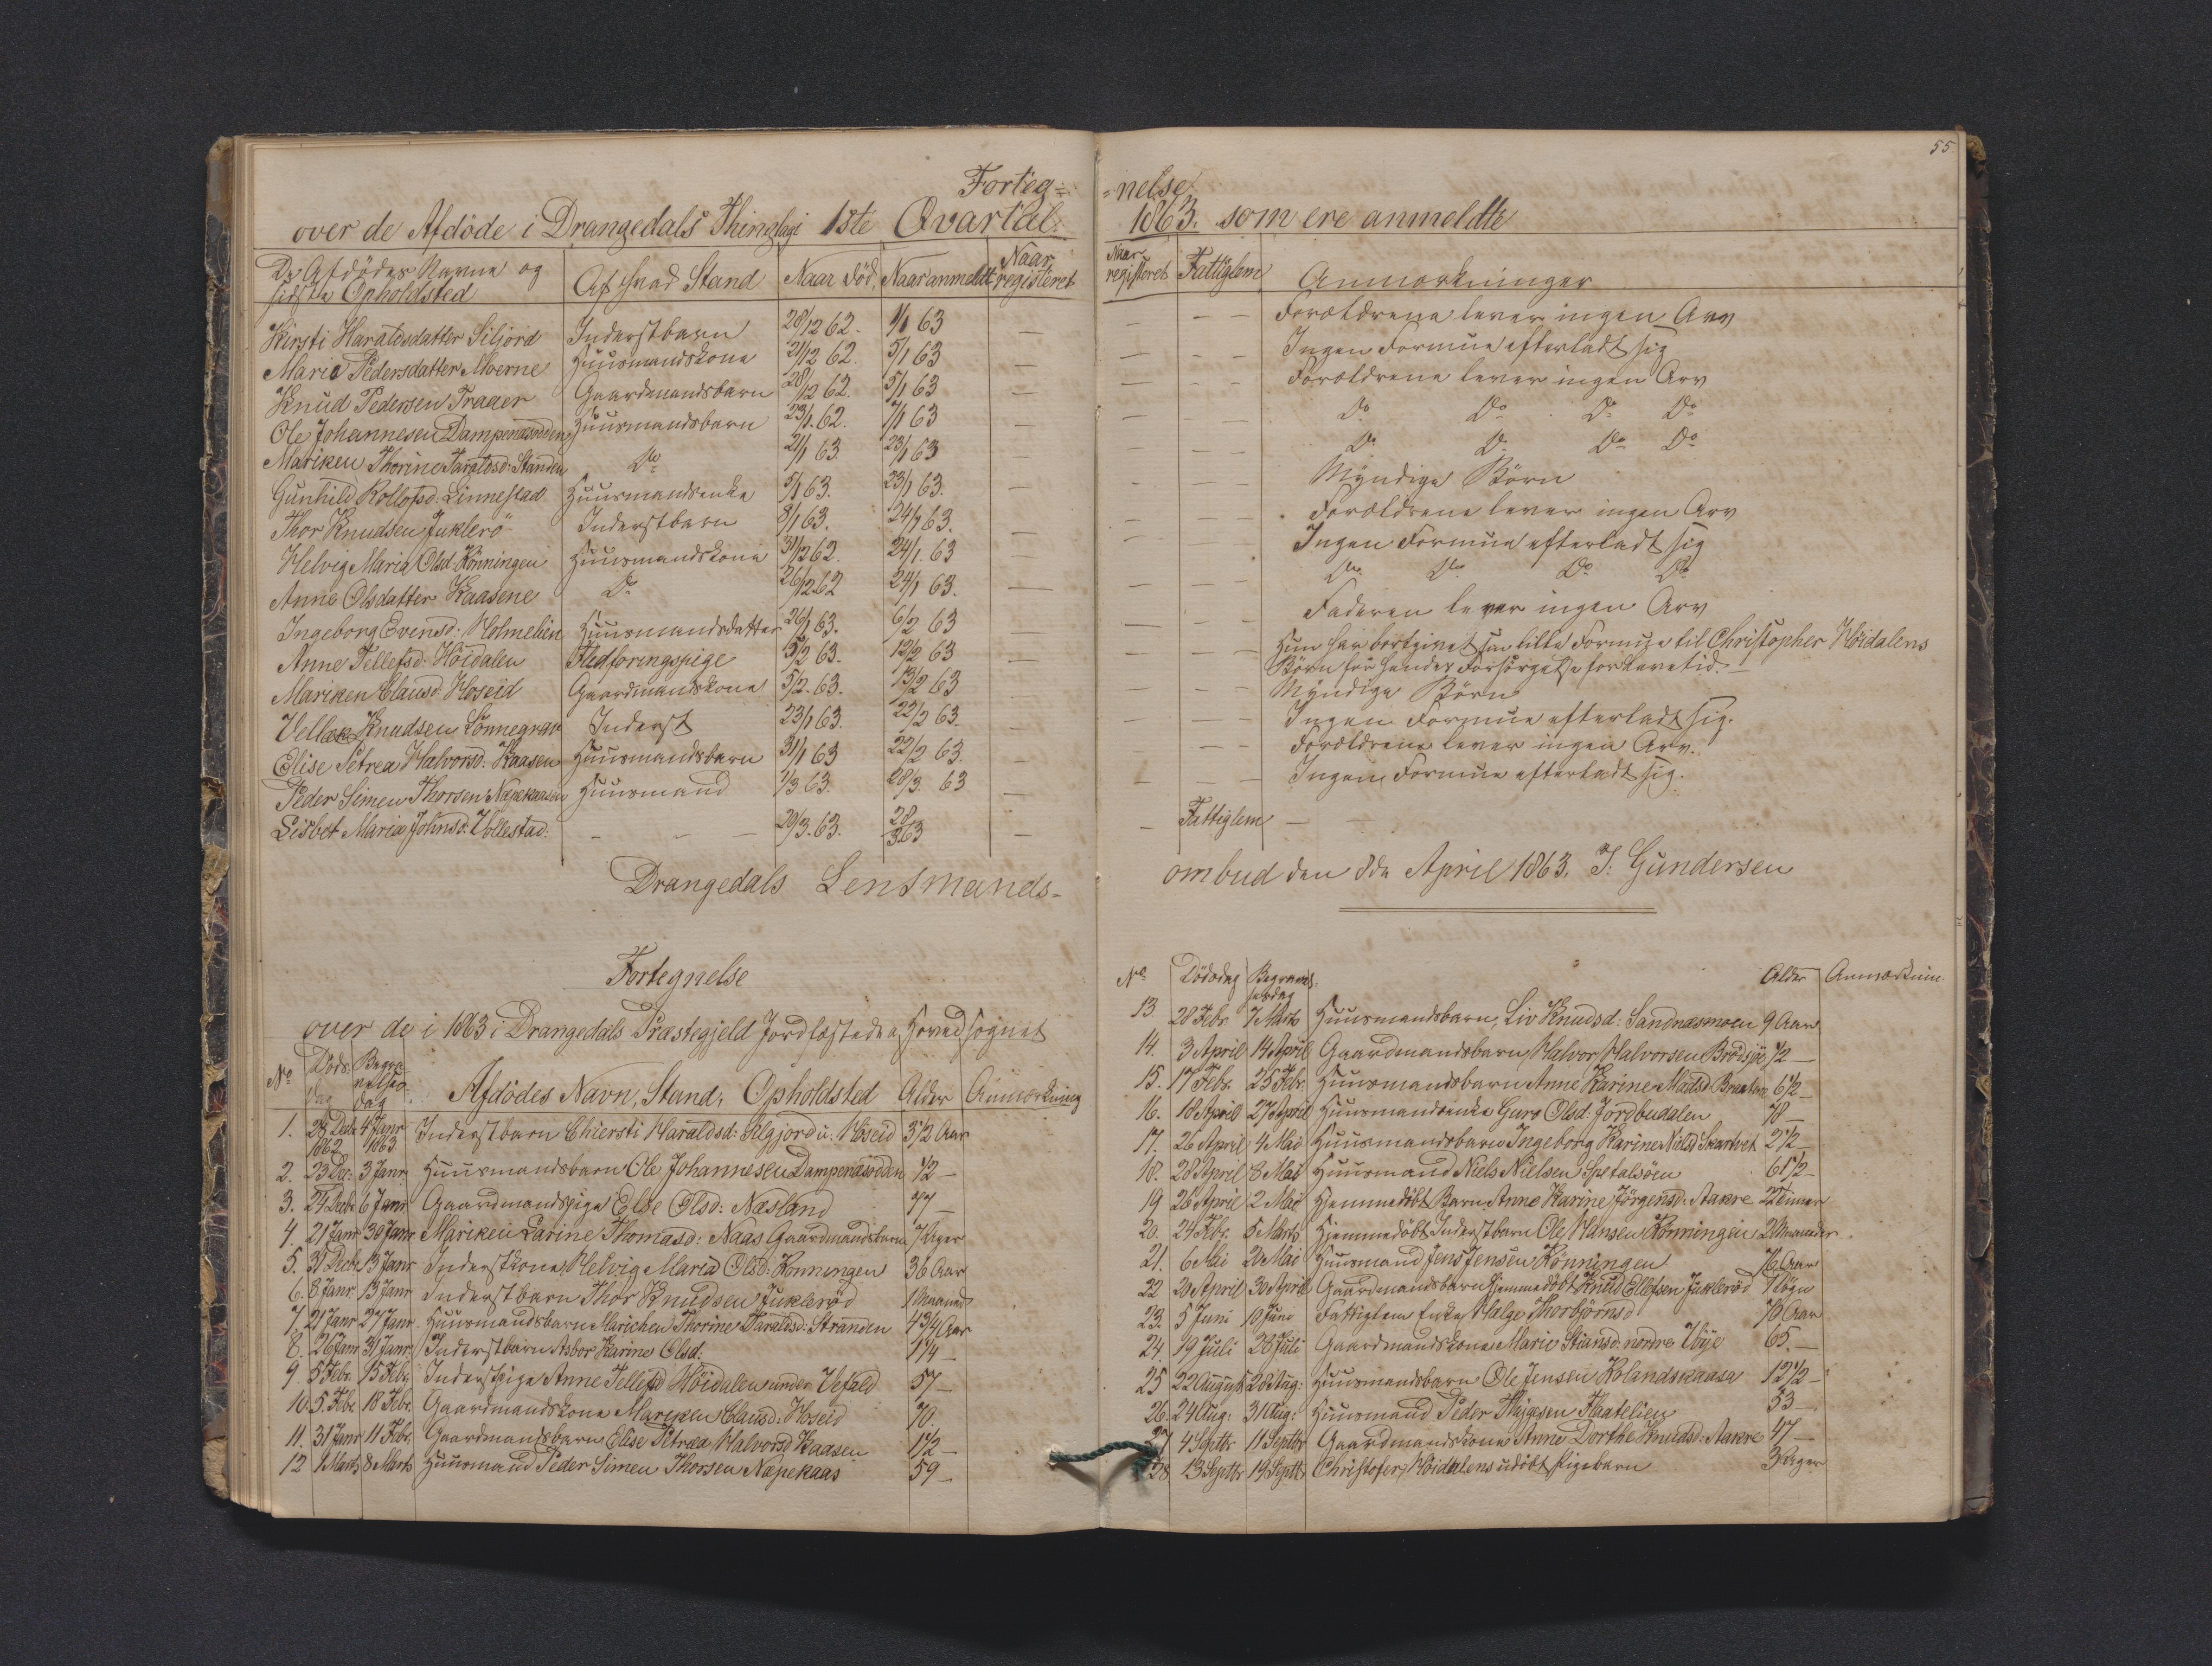 55
Forteg= =nelse
over de Afdöde i Drangedals Thinglag i 1ste Qvartal 1863. som ere anmeldte
De Afdödes Navne og sidste Opholdsted | Af hvad Stand | Naar död | Naar anmeldt | Naar registeret | Naar registeret | Fattiglem | Anmærkninger
Kirsti Haraldsdatter Siljord | Inderstbarn | 28/12 62. | 1/1 63 | — | — | — — | Forældrene lever ingen Arv
Marie Pedersdatter Moerne | Huusmandskone | 21/12 62. | 5/1 63 | — | — | — — | Ingen Formue efterladt sig
Knud Pedersen Traaer | Gaardmandsbarn | 28/12 62. | 5/1 63 | — | — | — — | Forældrene lever ingen Arv
Ole Johannesen Dampenæsodden | Huusmandsbarn | 23/1. 62. | 7/1 63 | — | — | — — | Do Do Do Do
Mariken Thorine Taraldsd: Standen | Do | 21/1 63. | 23/1 63 | — | — | — — | Do Do Do Do
Gunhild Rollefsd: Linnestad | Huusmandsenke | 5/1 63. | 23/1 63. | — | — | — — | Myndige Börn
Thor Knudsen Juklerö | Inderstbarn | 8/1 63. | 24/1 63. | — | — | — — | Forældrene lever ingen Arv
Helvig Maria Olsd: Könningen | Huusmandskone | 31/12 62. | 24/1. 63 | — | — | — — | Ingen Formue efterladt sig
Anne Olsdatter Kaasene | Do | 26/12 62 | 24/1 63. | — | — | — — | Do Do Do Do
Ingeborg Evensd: Holmelien | Huusmandsdatter | 26/1 63. | 6/2 63 | — | — | — — | Faderen lever ingen Arv
Anne Tellefsd: Höidalen | Flodforingspige | 5/2 63. | 12/2 63 | — | — | — — | Hun har bortgivet sin lille Formue til Christopher Höidalens
Börn for hendes Forsörgelse for Levetid.—
Mariken Clausd: Hoseid | Gaardmandskone | 5/2. 63. | 13/2 63 | — | — | — — | Myndige Börn
Vellek Knudsen Sönnegnav | Inderst | 23/1 63. | 22/2 63. | — | — | — — | Ingen Formue efterladt sig.
Elise Petrea Halvorsd: Kaasen | Huusmandsbarn | 31/1 63 | 22/2 63. | — | — | — — | Forældrene lever ingen Arv.
Peder Simen Thorsen Næpekaasen | Huusmand | 1/3 63. | 28/3. 63 | — | — | — — | Ingen Formue efterladt sig.
Lisbet Maria Johnsd: Vollestad. | — — — | 20/3. 63. | 28/3 63 | — | — | Fattiglem | — —
Drangedals Lensmands- ombud den 8de April 1863. J. Gundersen
Fortegnelse
over de i 1863 i Drangedals Præstegjeld Jordfæstede a, Hovedsognet
No | Döds: dag | Begravelses dag | Afdödes Navn, Stand, Opholdsted | Alder | Anmærkning
1. | 28 Decbr 1862 | 4 Janr 1863 | Inderstbarn Chiersti Haraldsd: Silgjord u. Hoseid | 3 1/2 Aar
2. | 23 De: | 3 Janr | Huusmandsbarn Ole Johannesen Dampenæsodden | 1/2 —
3. | 24 Decbr | 6 Janr | Gaardmandspige Else Olsd: Næsland | 77 —
4. | 21 Janr | 30 Janr | Mariken Larine Thomasd: Naas Gaardmandsbarn | 7 Uger
5. | 31 Decbr | 13 Janr | Inderstkone, Helvig Maria Olsd: Könningen | 36 Aar
6. | 8 Janr | 13 Janr | Inderstbarn Thor Knudsen Juklerød | 1 Maaned
7. | 21 Janr | 27 Janr | Huusmandsbarn Marichen Thorine Taraldsd: Stranden | 4 3/4 Aar
8. | 26 Janr | 31 Janr | Inderstbarn Asbor Karine Olsd: | 1 1/4 —
9. | 5 Febr. | 15 Febr. | Inderstpige Anne Tellefsd Höidalen under Vefald | 57 —
10. | 5. Febr. | 18 Febr. | Gaardmandskone Mariken Clausd: Hoseid | 70.
11. | 31 Janr | 11 Febr. | Gaardmandsbarn Elise Petræa Halvorsd Kaasen | 1 1/2 —
12 | 1 Marts | 8 Marts | Huusmand Peder Simen Thorsen Næpekaas | 59 —
No | Dödsdag | Begravelsesdag | Alder | Anmærkning
13 | 28 Febr | 7 Marts | Huusmandsbarn, Liv Knudsd: Sandnæsmoen | 9 Aar
14. | 3 April | 14 April | Gaardmandsbarn Halvor Halvorsen Brödsjö | 1/2 —
15. | 17 Febr. | 25 Febr. | Huusmandsbarn Anne Karine Madsd: Braaten | 6 1/2 —
16. | 18 April | 27 April | Huusmandsenke Guro Olsd: Jordbudalen | 78 —
17. | 26 April | 4 Mai | Huusmandsbarn Ingeborg Karine Nielsd Skartvet | 2 1/2 —
18. | 28 April | 8 Mai | Huusmand Niels Nielsen Spetalsöen | 61 1/2 —
19 | 26 April | 2 Mai | Hjemmedöbt Barn Anne Karine Jörgensd: Aakre | 22 Timer
20. | 24 Febr. | 5 Marts | Hjemmedöbt Inderstbarn Ole Hansen Könningen | 2 Maaneder
21. | 6 Mai | 20 Mai | Huusmand Jens Jensen Könningen | 76 Aar
22 | 20 April | 30 April | Gaardmandsbarn hjemmedöbt Knud Ellefsen Juklerød | 1 Dögn
23. | 5 Juni | 10 Juni | Fattiglem Enke Helge Thorbjörnsd | 76 Aar
24. | 19 Juli | 28 Juli | Gaardmandskone Marie Stiansd: nordre Voje | 65. —
25 | 22 August | 28 Aug: | Huusmandsbarn Ole Jensen Holandskaasa | 12 1/2 —
26. | 24 Aug: | 31 Aug: | Huusmand Peder Thygesen Haatelien | 53 —
27 | 4 Septbr | 11 Septbr | Gaardmandskone Anne Dorthe Knudsd: Aakre | 47 —
28 | 13 Septbr | 19 Septbr | Christofer Höidalens udöbt Pigebarn | 3 Uger